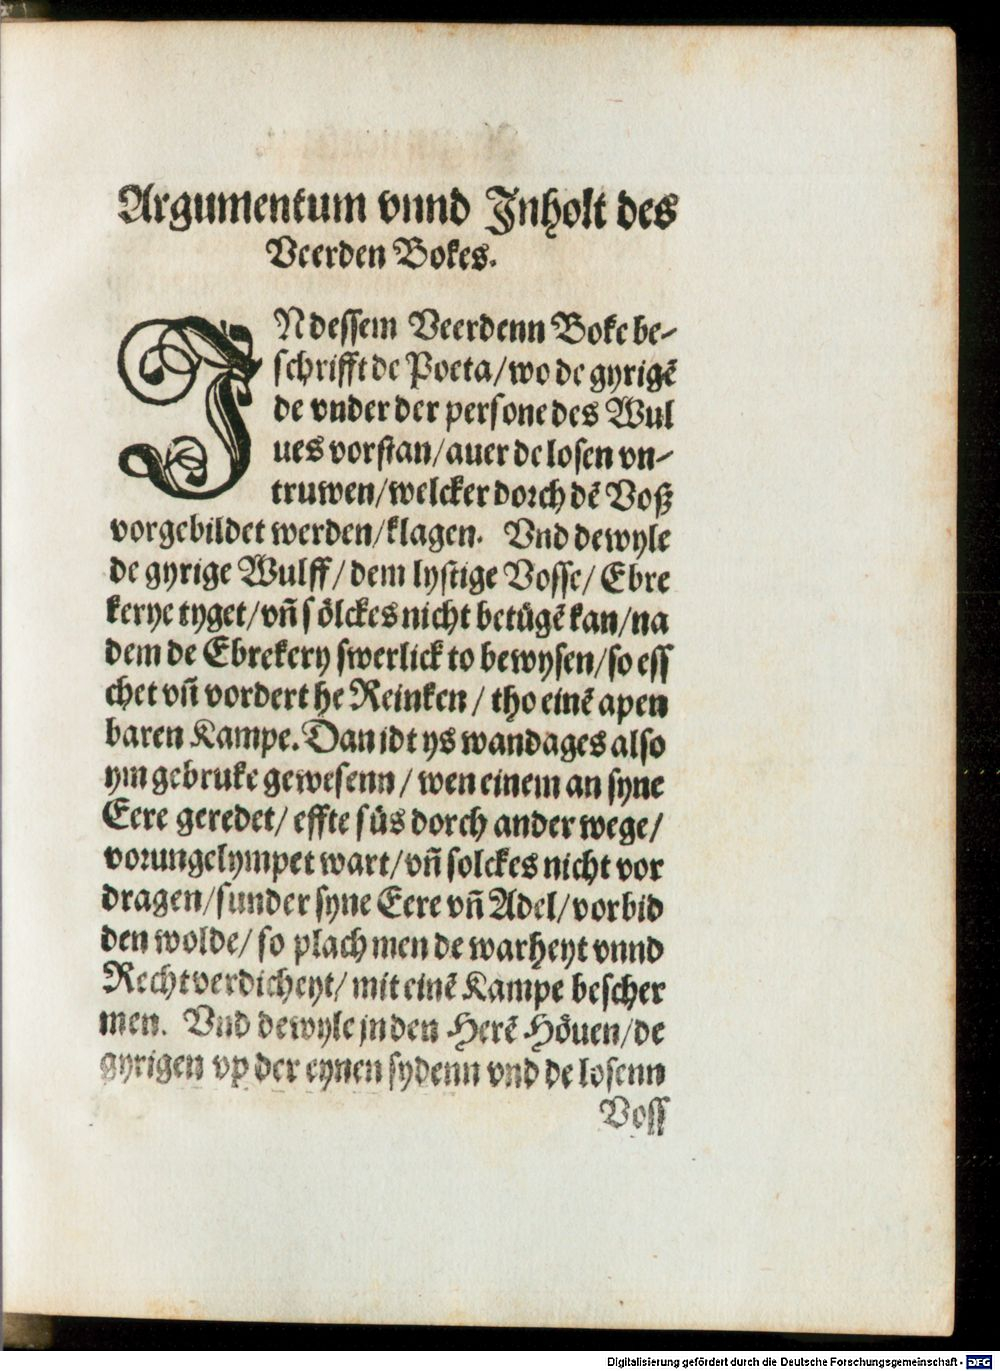 Argumentum vnnd Jnholt des
Veerden Bokes.
JN dessem Veerdenn Boke be-
schrifft de Poeta/ wo de gyrigē
de vnder der persone des Wul
ues vorstan/ auer de losen vn-
truwen/ welcker dorch dē Voß
vorgebildet werden/ klagen. Vnd dewyle
de gyrige Wulff/ dem lystige Vosse/ Ebre
kerye tyget/ vñ sölckes nicht betügē kan/ na
dem de Ebrekery swerlick to bewysen/ so ess
chet vñ vordert he Reinken/ tho einē apen
baren Kampe. Dan idt ys wandages also
ym gebruke gewesenn/ wen einem an syne
Eere geredet/ effte süs dorch ander wege/
vorungelympet wart/ vñ solckes nicht vor
dragen/ sunder syne Eere vñ Adel/ vorbid
den wolde/ so plach men de warheyt vnnd
Rechtverdicheyt/ mit einē Kampe bescher
men. Vnd dewyle jn den Herē Höuen/ de
gyrigen vp der eynen sydenn vnd de losenn
Voss
Digitalisierung gefördert durch die Deutsche Forschungsgemeinschaft - DFG